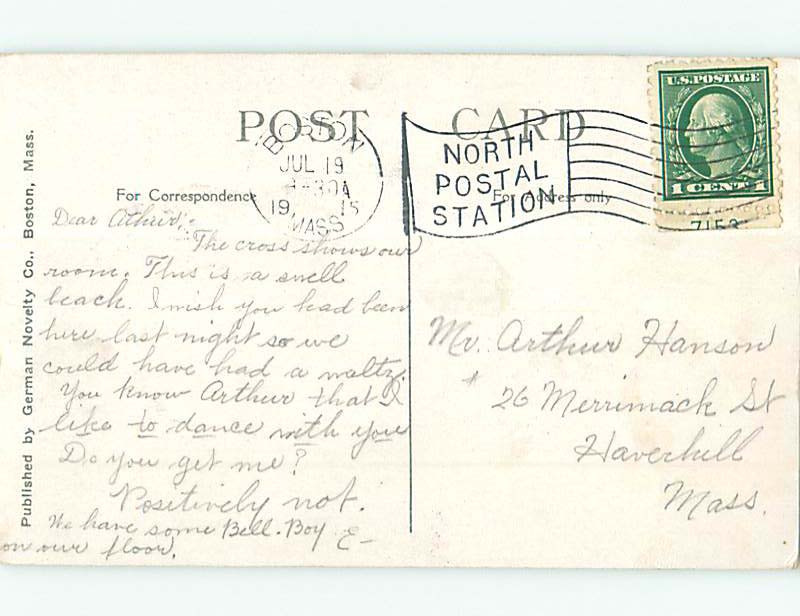 POST CARD
BOSTON
JUL 19
19 15
MASS
NORTH
POSTAL
STATION
U.S. POSTAGE
1 CENT 1
7153
For Correspondence
For Address only
Published by German Novelty Co., Boston, Mass.
Dear Athur:
The cross shows our
room. This is a swell
beach. I wish you had been
here last night so we
could have had a waltz.
You know Arthur that I
like to dance with you
Do you get me?
Positively not.
We have some Bell-Boy E-
on our floor.
Mr. Arthur Hanson
26 Merrimack St
Haverhill
Mass.